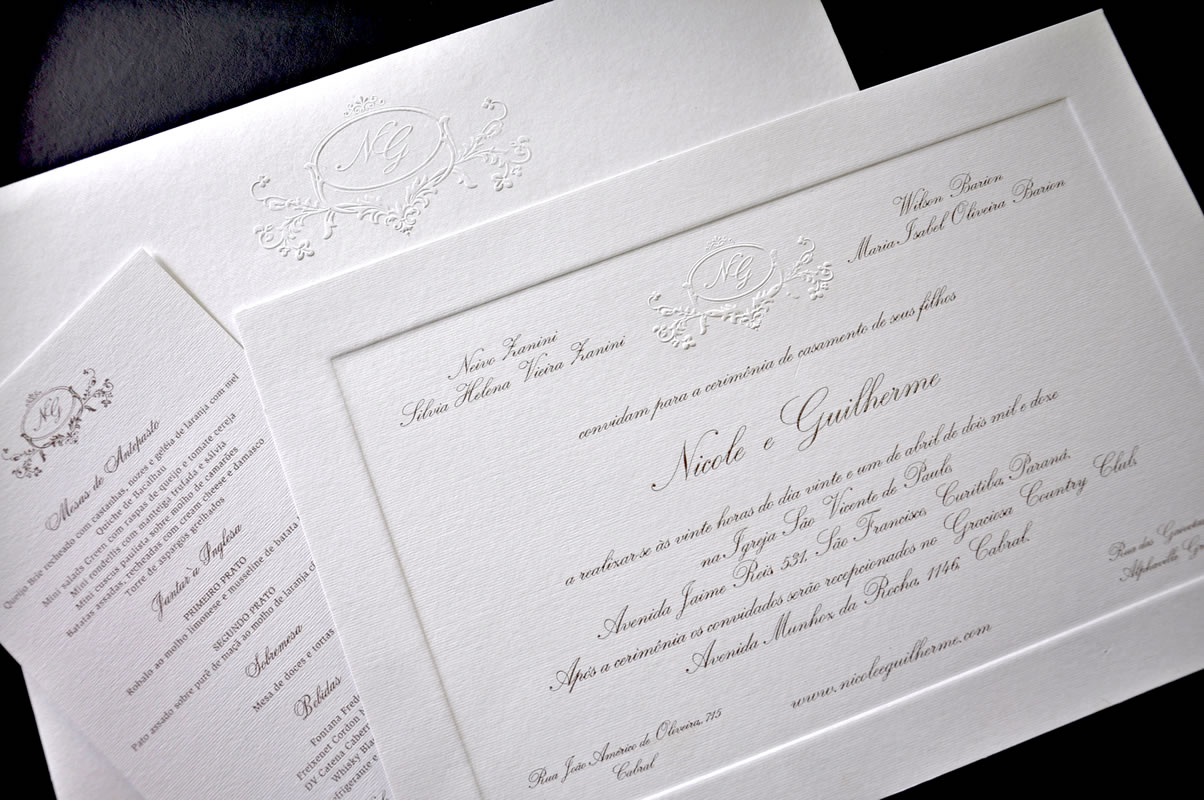 NG
NG
Neivo Zanini
Silvia Helena Vieira Zanini
Wilson Barion
Maria Isabel Oliveira Barion
convidam para a cerimônia de casamento de seus filhos
Nicole e Guilherme
a realizar-se às vinte horas do dia vinte e um de abril de dois mil e doze
na Igreja São Vicente de Paulo,
Avenida Jaime Reis, 531, São Francisco, Curitiba, Paraná.
Após a cerimônia os convidados serão recepcionados no Graciosa Country Club,
Avenida Munhoz da Rocha, 1146, Cabral.
www.nicoleeguilherme.com
Rua João Américo de Oliveira, 715
Cabral
Rua das
Alphaville
NG
Mesas de Antepasto
Queijo Brie recheado com castanhas, nozes e geléia de laranja com mel
Quiche de Bacalhau
Mini salads Green com raspas de queijo e tomate cereja
Mini rondellis com manteiga trufada e sálvia
Mini cuscus paulista sobre molho de camarões
Batatas assadas, recheadas com cream cheese e damasco
Torre de aspargos grelhados
Jantar à Inglesa
PRIMEIRO PRATO
Robalo ao molho limonese e musseline de batata
SEGUNDO PRATO
Pato assado sobre purê de maçã ao molho de laranja
Sobremesa
Mesa de doces e tortas
Bebidas
Fontana
Freixenet Cordon
DV Catena
Whisky
refrigerante e